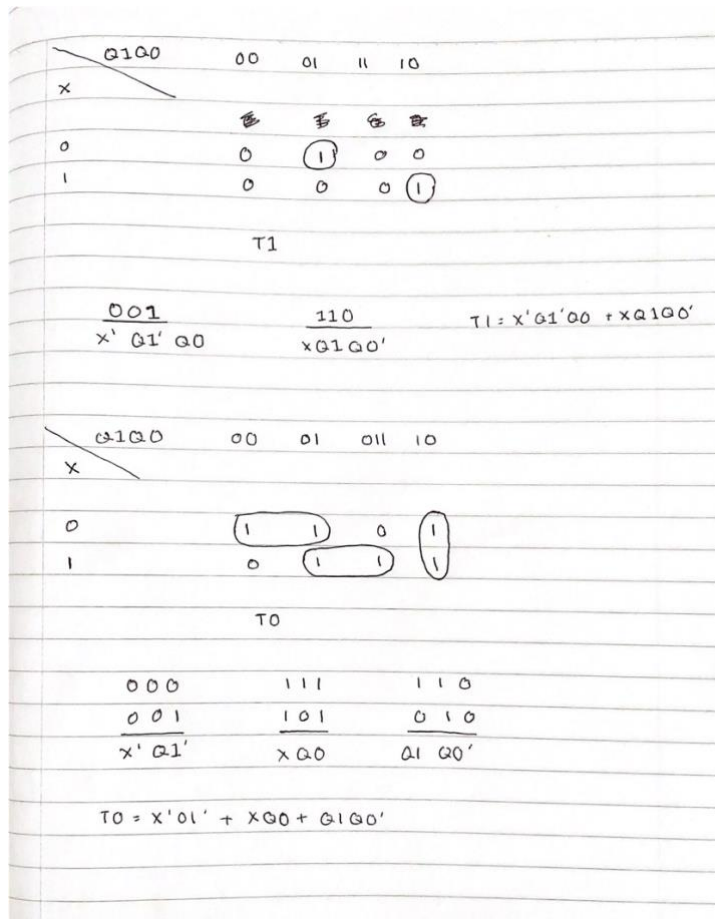 Q1Q0 00 01 11 10
X
0 0 1 0 0
1 0 0 0 1
T1
001 110 T1 = X'Q1'Q0 + XQ1Q0'
X' Q1' Q0 XQ1Q0'
Q1Q0 00 01 011 10
X
0 1 1 0 1
1 0 1 1 1
T0
000 111 110
001 101 010
X' Q1' XQ0 Q1 Q0'
T0 = X'01' + XQ0 + Q1Q0'